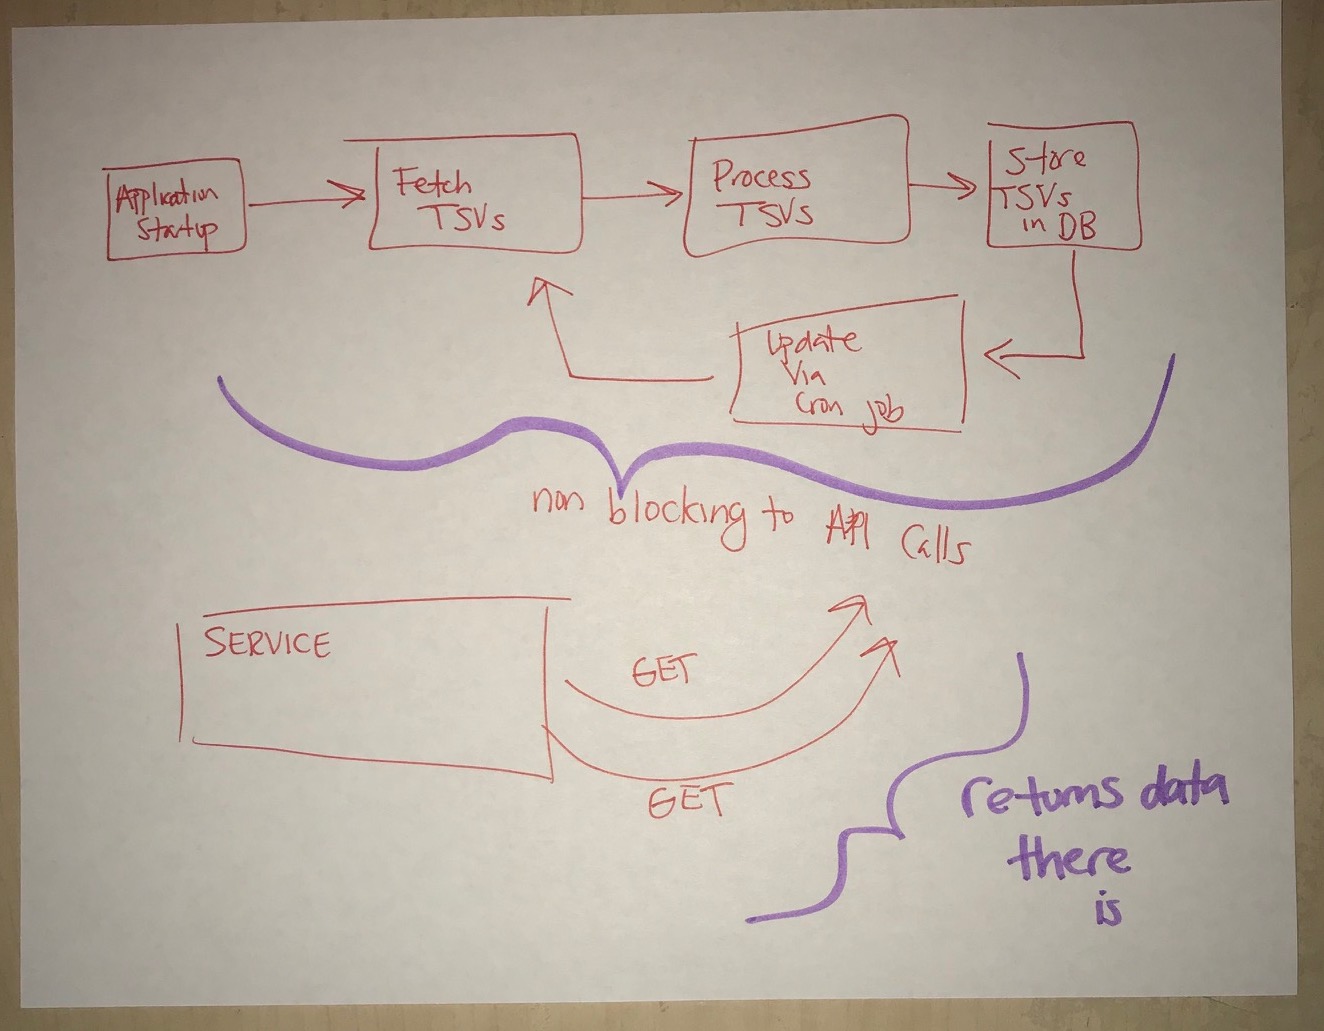 Application
Startup
Fetch
TSVs
Process
TSVs
Store
TSVs
in DB
Update
Via
Cron job
non blocking to API Calls
SERVICE
GET
GET
returns data
there
is